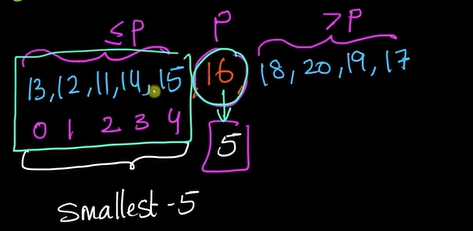 ≤P P >P
13, 12, 11, 14, 15 16 18, 20, 19, 17
0 1 2 3 4 5
Smallest - 5